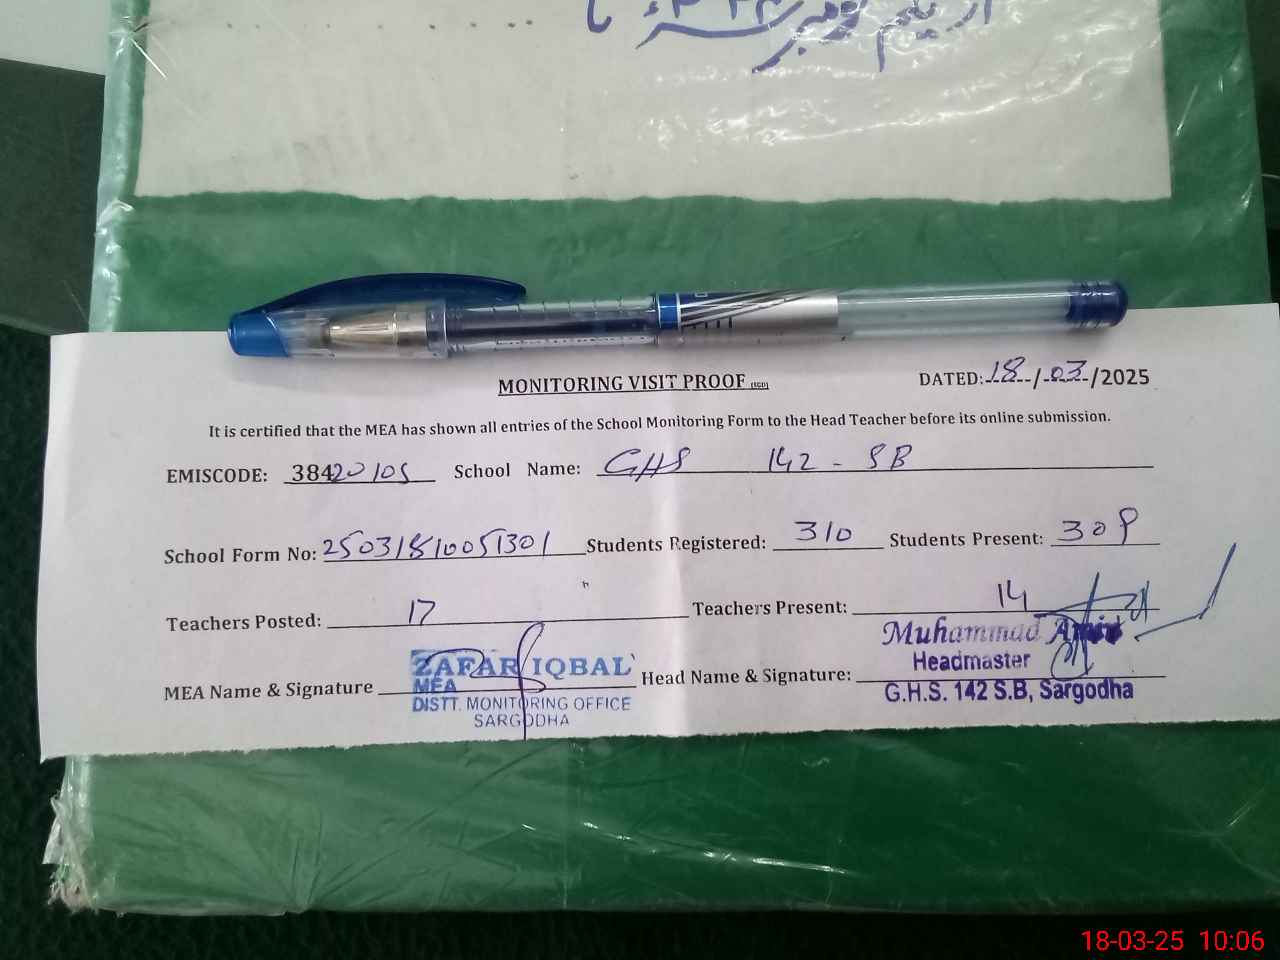 MONITORING VISIT PROOF (SGD) DATED: 18/03/2025
It is certified that the MEA has shown all entries of the School Monitoring Form to the Head Teacher before its online submission.
EMISCODE: 38420105 School Name: GHS 142-SB
School Form No: 25031810051301 Students Registered: 310 Students Present: 309
Teachers Posted: 17 Teachers Present: 14
MEA Name & Signature ZAFAR IQBAL Head Name & Signature: Muhammad
MEA
DISTT. MONITORING OFFICE
SARGODHA
Headmaster
G.H.S. 142 S.B, Sargodha
18-03-25 10:06